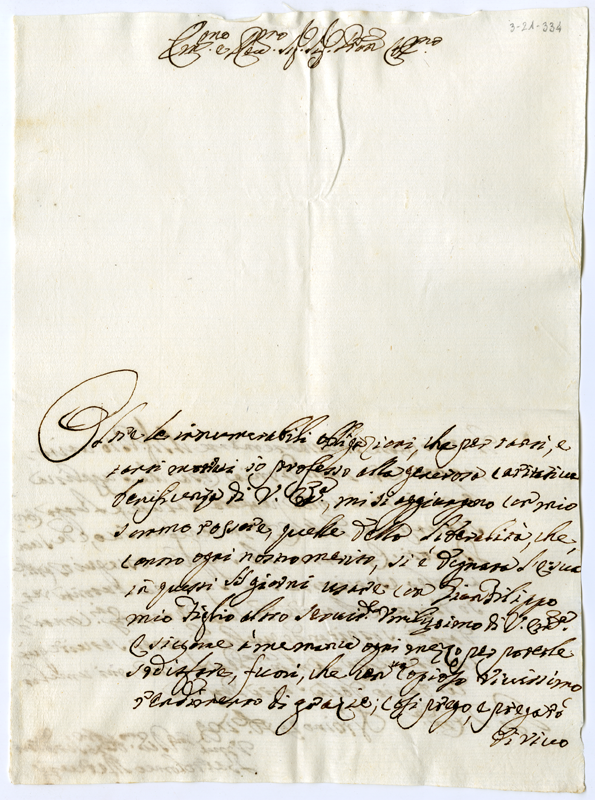 3-21-334
Em.mo e Rev.mo Sig. Sig. Pron. Col.mo
Oltre le innumerabili obligazioni, che per tanti, e
tanti motivi io professo alla generosa caritativa
beneficenza di V. Em.za, mi si aggiungono con mio
sommo rossore, quelle della liberalità, che
contro ogni nostro merito, si è degnata
in questi S.ti giorni usare con Gian Filippo
mio figlio altro Servid.re Umilissimo di V. Em.za.
E siccome à me manca ogni mezzo per poterle
sodisfare, fuori, che un copioso vivissimo
rendimento di grazie; così prego, e pregarò